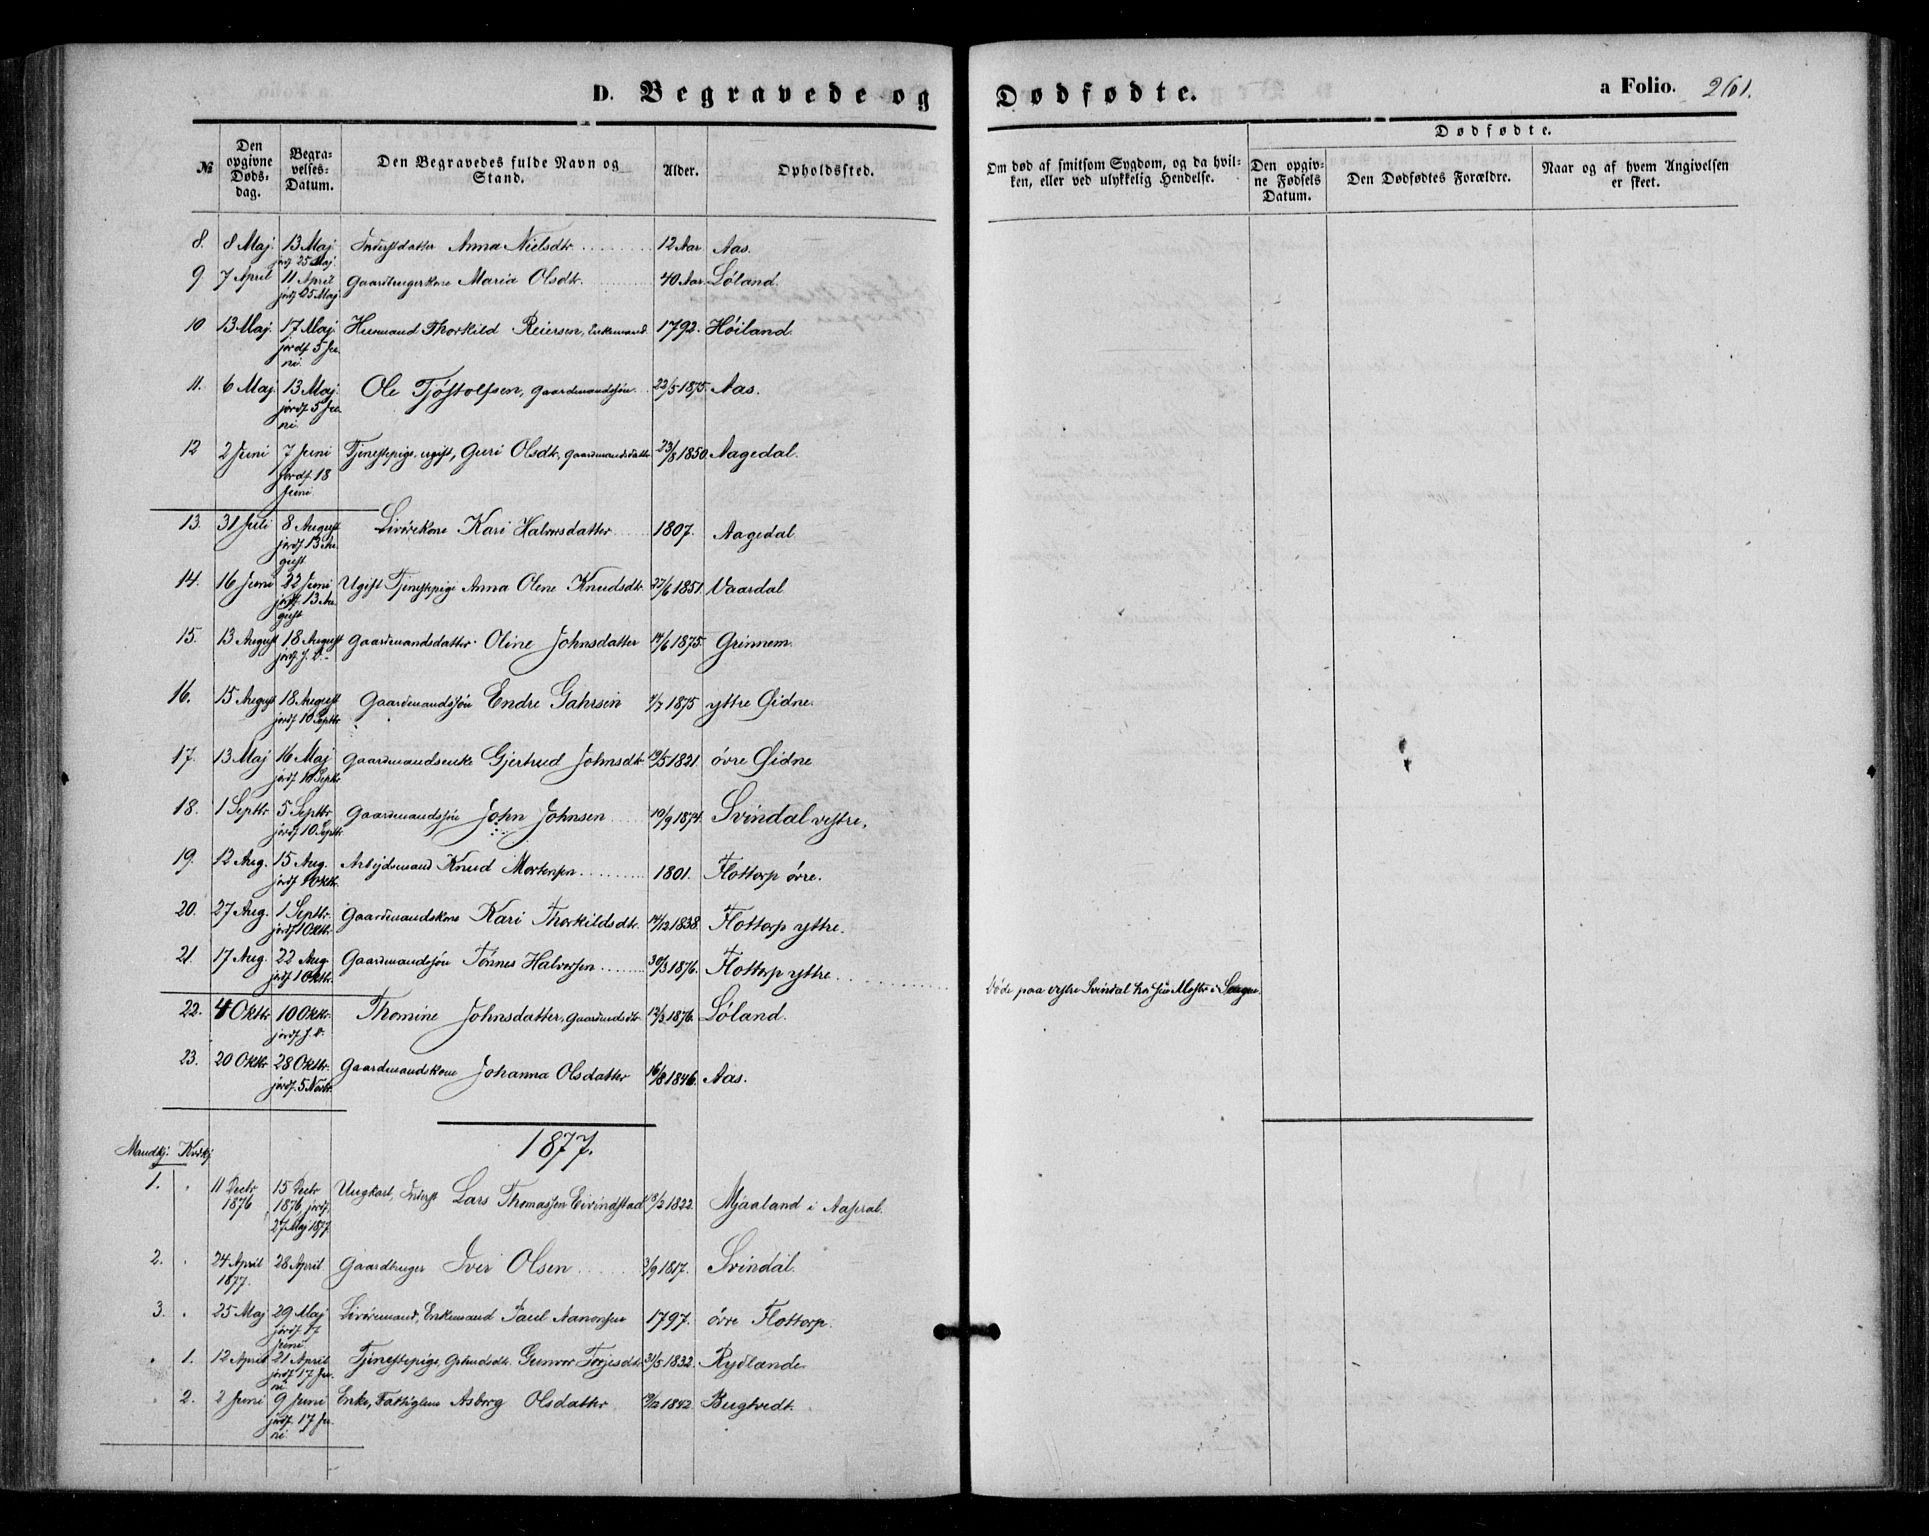 D. Begravede og Dødfødte.
a Folio. 261.
№
Den opgivne Døds-dag.
Begra-velses-Datum.
Den Begravedes fulde Navn og Stand.
Alder.
Opholdssted.
Om død af smitsom Sygdom, og da hvil-
ken, eller ved ulykkelig Hendelse.
Dødfødte.
Den opgiv-ne Fødsels Datum.
Den Dødfødtes Forældre.
Naar og af hvem Angivelsen er skeet.
8. 8 Maj. 13 Maj jordf 25 Maj. Inderstdatter Anna Nielsdtr. 12 Aar Aas.
9. 7 April 11 April jordf 25 Maj Gaardbrugerkone Maria Olsdtr. 40 Aar. Løland.
10 13 Maj. 17 Maj. jordf 5 Juni. Huusmand Thorkild Reiersen, Enkemand. 1792. Høiland.
11. 6 Maj. 13 Maj. jordf 5 Juni. Ole Tjøstolfsen, Gaardmandssøn 22/5 1875. Aas.
12 2 Juni 7 Juni jordf. 18 Juni Tjenestepige, ugift, Guri Olsdt, gaardmandsdatter 23/8 1850. Aagedal.
13. 31 Juli 8 August jordf 13 August. Livørekone Kari Halvorsdatter 1807. Aagedal
14. 16 Juni 22 Juni jordf. 13 August Ugift Tjenestepige Anna Olene Knudsdtr. 27/6 1851. Vaardal
15. 13 August 18 August jordf. s. D. Gaardmandsdatter Oline Johnsdatter 14/6 1875. Grinnem.
16. 15 August 18 August jordf 10 Septbr Gaardmandssøn Endre Gahrsen 4/7 1875 yttre Øidne.
17. 13 Maj 16 Maj jordf 10 Septbr Gaardmandsenke Gjertrud Johnsdtr 19/5 1821. øvre Øidne
18. 1 Septbr 5 Septbr jordf. 10 Septbr. Gaardmandssøn John Johnsen 10/9 1874. Svindal vestre.
19. 12 Aug. 15 Aug. jordf 1 Oktbr. Arbejdsmand Knud Mortensen 1801. Flottorp øvre.
20. 27 Aug. 1 Septbr. jordf 1 Oktbr. Gaardmandskone Kari Thorkildsdtr. 14/12 1838. Flottorp yttre.
21. 17 Aug. 22 Aug. jordf 1 Oktbr. Gaardmandssøn Tønnes Halvorsen 30/3 1876. Flottorp yttre. Døde paa vestre Svindal hos sin Moster i Sengen.
22. 4 Oktbr 10 Oktbr. jordf. s. D. Thomine Johnsdatter, Gaardmdsdtr 12/3 1876. Løland.
23. 20 Oktbr 28 Oktbr. jordf. 5 Novbr. Gaardmandskone Johanna Olsdatter 16/8 1846. Aas.
1877.
Mandkj. Kvdkj
1. 11 Decbr 1876 15 Decbr 1876, jordf. 27 Maj 1877. Ungkarl, Inderst Lars Thomassen Eivindstad 18/2 1822. Mjaaland i Aaseral.
2. 24 April 1877. 28 April. Gaardbruger Iver Olsen 3/9 1817. Svindal.
3. 25 Maj 29 Maj jordf. 17 Juni. Livøremand, Enkemand Paul Aanonsen 1797. øvre Flottorp.
1. 12 April 21 April jordf 17 Juni Tjenestepige, Gmdsdt. Gunvor Torjesdtr 31/5 1832. Rydlande.
2. 2 Juni 9 Juni jordf. 17 Juni. Enke, Fattiglem Asborg Olsdatter 12/12 1842. Bugtvedt.